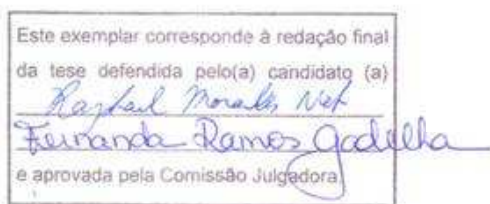 Este exemplar corresponde à redação final
da tese defendida pelo(a) candidato (a)
Raphael Morales
Fernanda Ramos Gadelha
e aprovada pela Comissão Julgadora